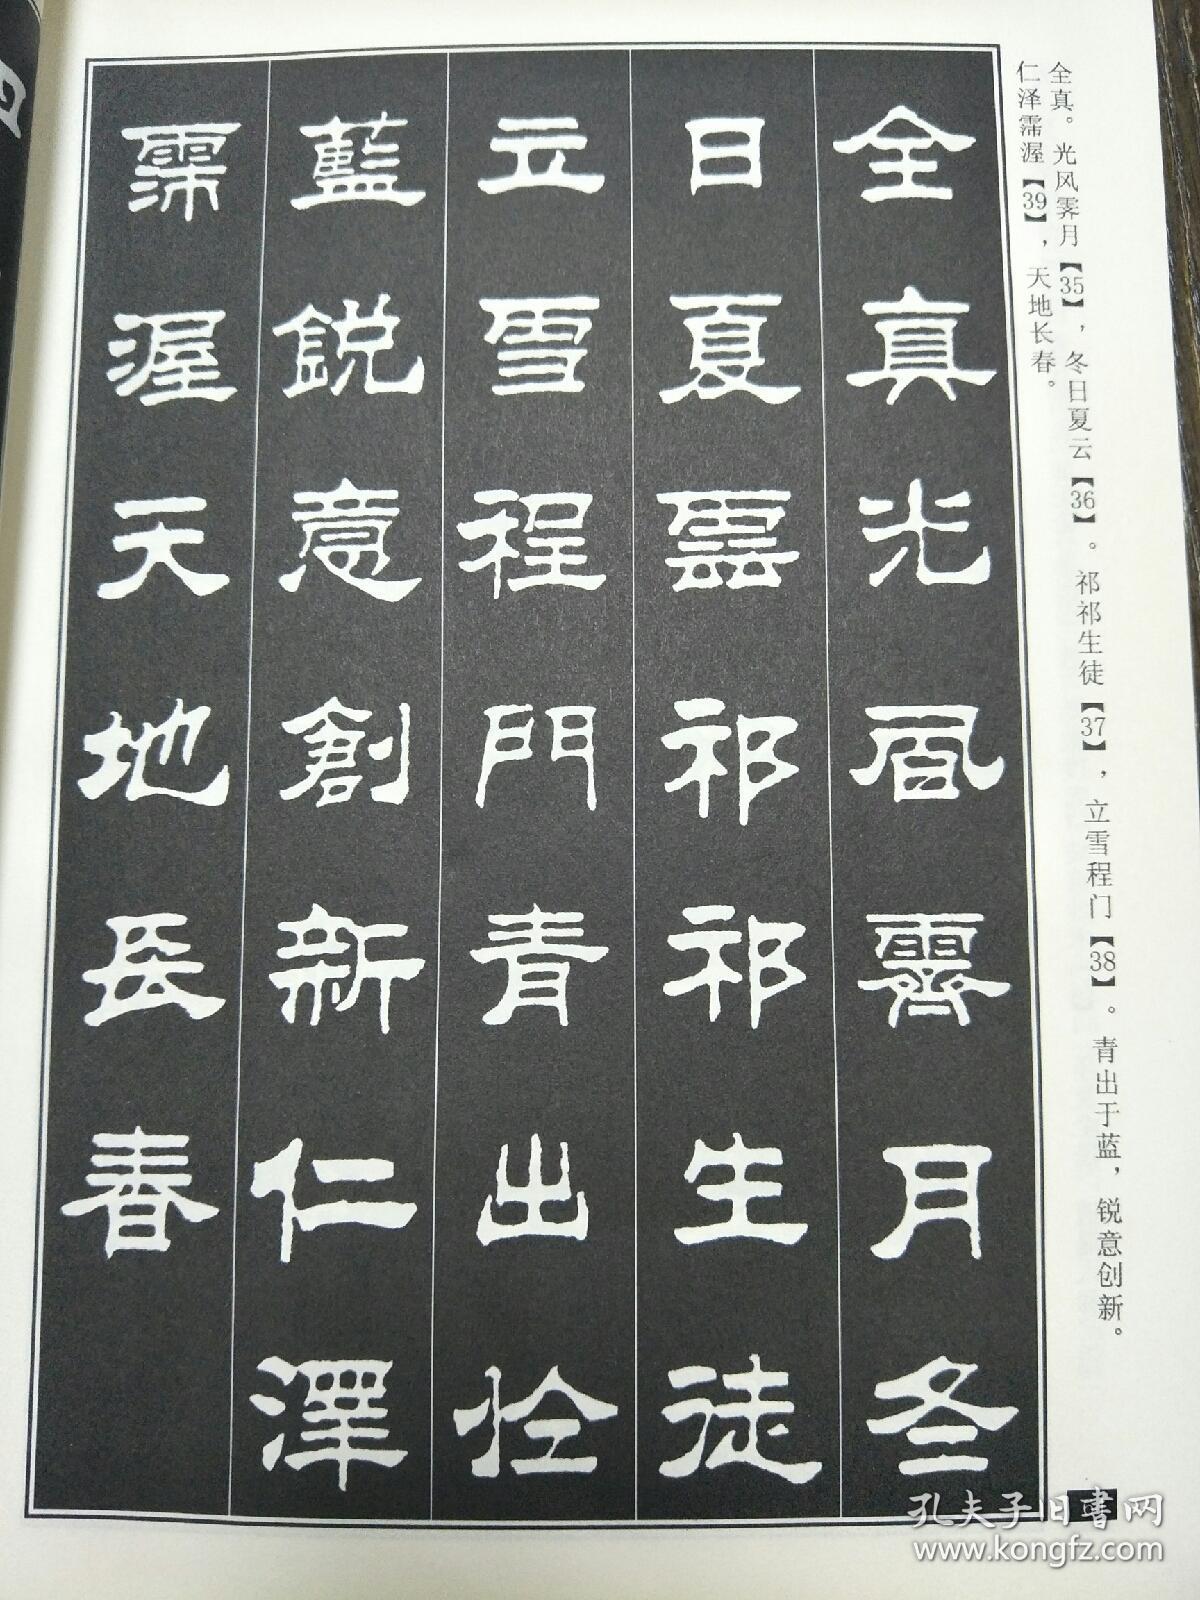 全真。光风霁月【35】，冬日夏云【36】。祁祁生徒【37】，立雪程门【38】。青出于蓝，锐意创新。
仁泽霈渥【39】，天地长春。
全真光風霽月冬
日夏雲祁祁生徒
立雪程門青出於
藍鋭意創新仁澤
霈渥天地長春
孔夫子旧書网
www.kongfz.com